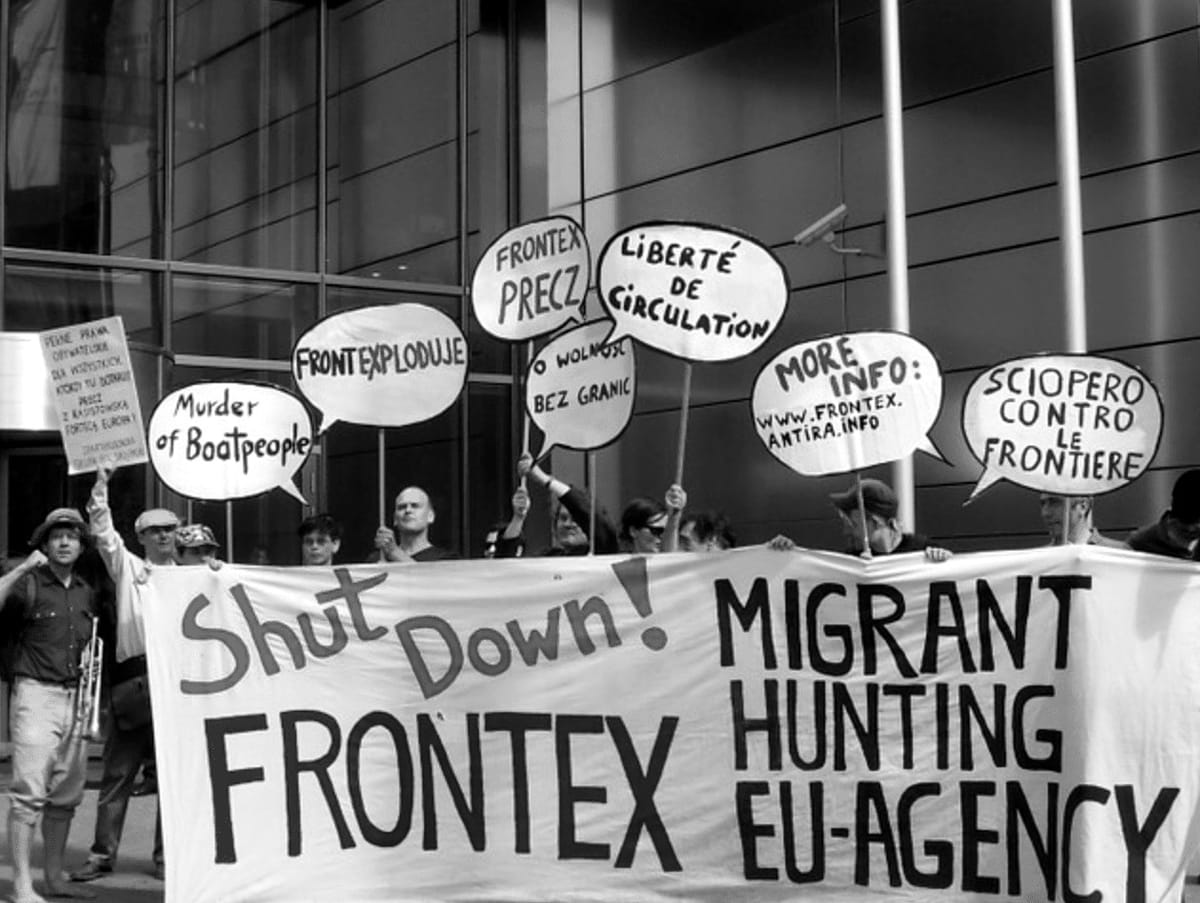 PEŁNE PRAWA
OBYWATELSKIE
DLA WSZYSTKICH,
KTÓRZY TU DOTARLI!
PRECZ
Z RASISTOWSKĄ
FORTECĄ EUROPA!
Murder
of Boatpeople
FRONTEXPLODUJE
FRONTEX
PRECZ
LiBERTÉ
DE
CiRCULATION
O WOLNOŚĆ
BEZ GRANIC
MORE
INFO:
WWW.FRONTEX.
ANTIRA.INFO
SCIOPERO
CONTRO
LE
FRONTIERE
Shut
Down!
FRONTEX
MIGRANT
HUNTING
EU-AGENCY